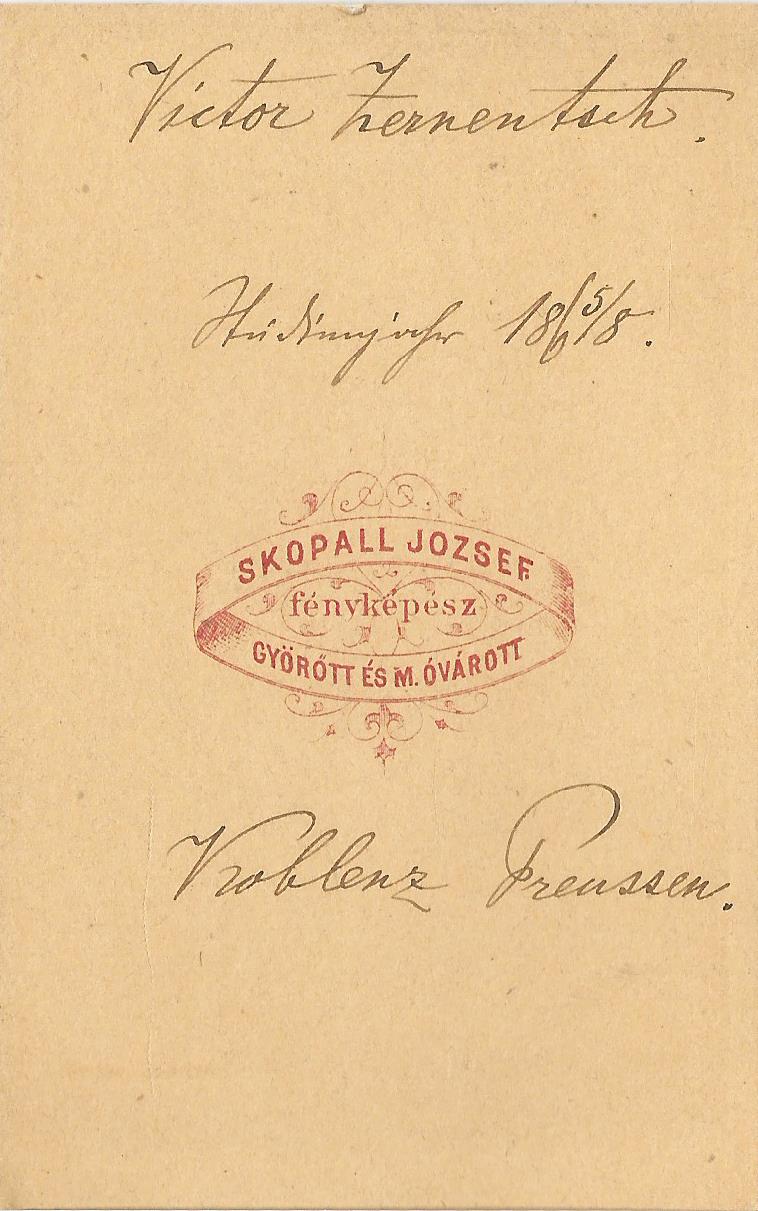 Victor Zernentsch.
Studienjahr
SKOPALL JOZSEF.
fényképész
GYÖRŐTT ÉS M. ÓVÁROTT
Koblenz Preussen.